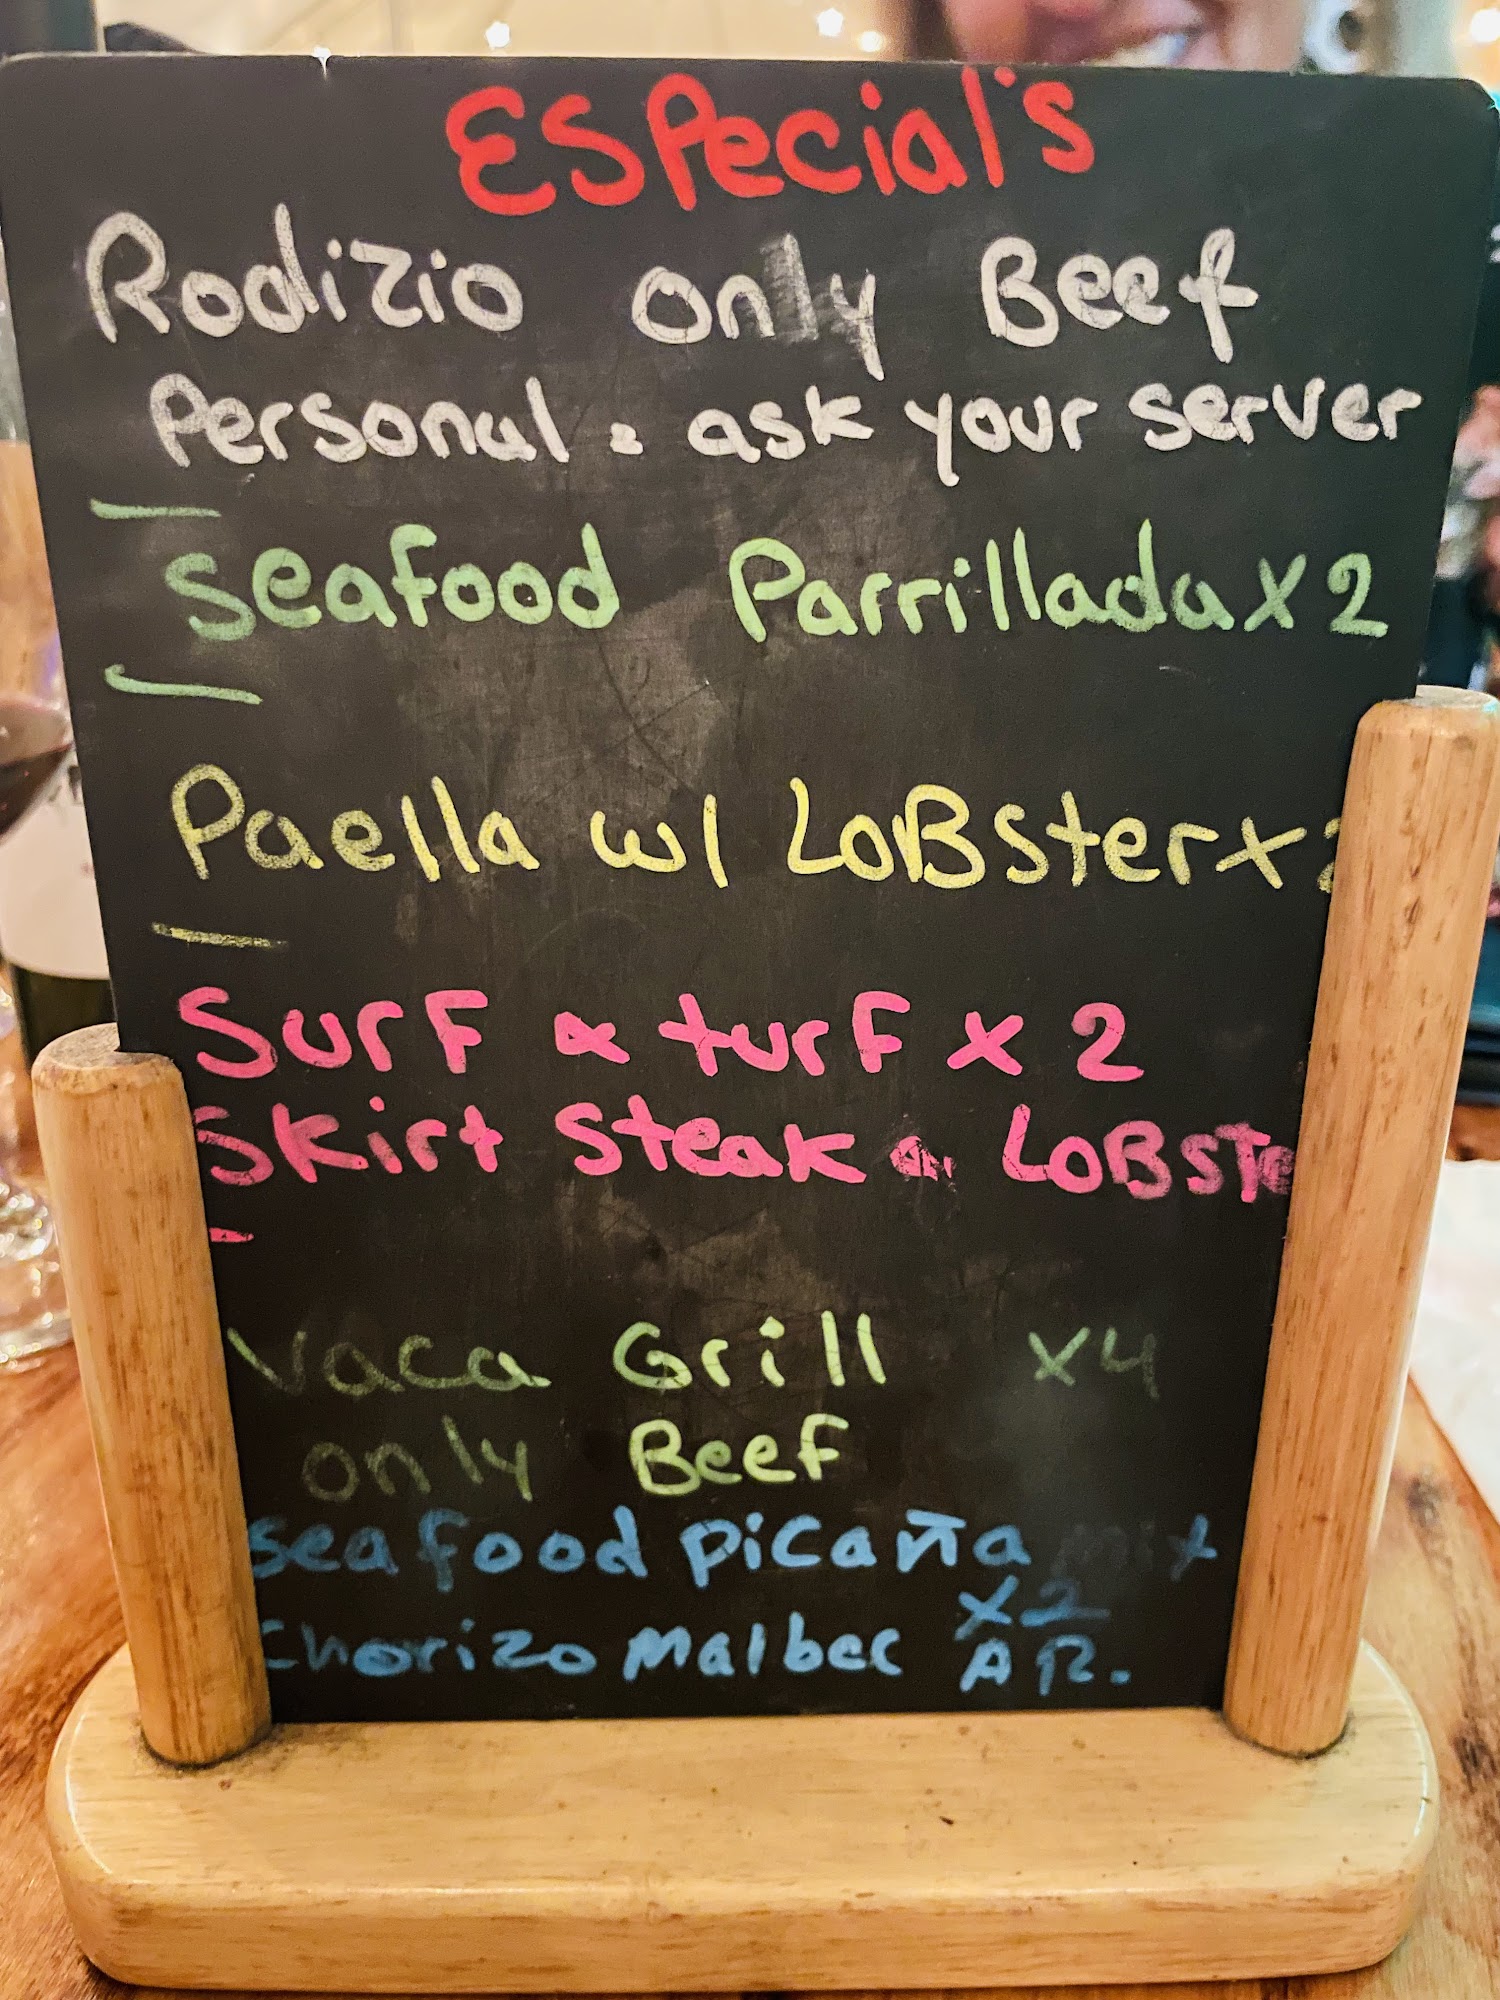 ESPecial's
Rodizio only Beef
Personal. ask your server
Seafood Parrillada x 2
Paella w/ LOBster x
Surf & turf x 2
Skirt Steak LOBSTe
Vaca Grill x4
only Beef
seafood picaña mix
x2
Chorizo Malbec AR.